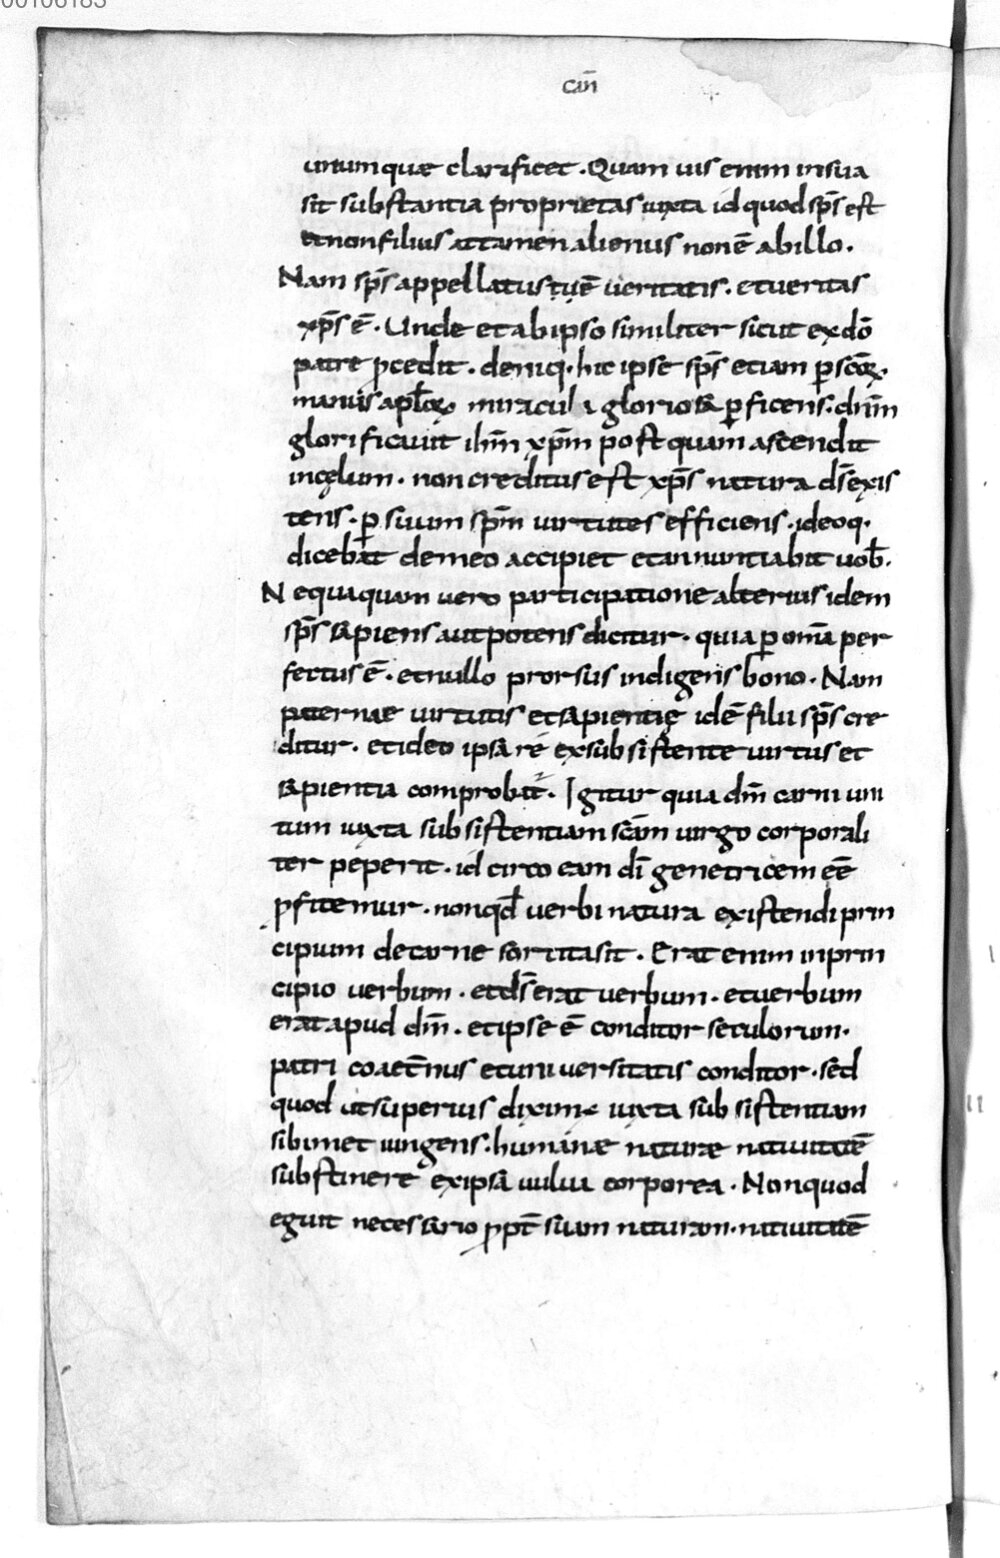 00106183
CAN̄
unum quæ clarificet. Quam uis enim insua
sit substantia proprietas iuxta id quod sp̄s est
etnonfilius attamen alienus nonē abillo.
Nam sp̄s appellatus tuē ueritatis. etueritas
xp̄s ē. Unde etabipso similiter sicut exdō
patre ꝓcedit. deniq. hic ipse sp̄s etiam ꝑ scōꝝ.
manus aploꝝ miracula gloriosa ꝑficens. dnm̄
glorificauit ihm̄ xp̄m postquam ascendit
incęlum. non creditus est xp̄s natura ds̄ exis
tens. ꝑ suum sp̄m uirtutes efficiens. ideoq.
dicebat demeo accipiet etannuntiabit uob̄.
Nequaquam uero participatione alterius idem
sp̄s sapiens aut potens dicitur. quia ꝑ omīa per
fectus ē. etnullo prorsus indigens bono. Nam
paternae uirtutis etsapientię idē filii sp̄s cre
ditur. etideo ipsa rē exsubsistente uirtus et
sapientia comprobat̄. Igitur quia dm̄ carni uni
tum iuxta subsistentiam scām uirgo corporali
ter peperit. id circo eam dī genetricem eē
ꝓfitemur. nonqđ uerbi natura existendi prin
cipium decarne sortitasit. Erat enim inprin
cipio uerbum. etds̄ erat uerbum. etuerbum
erat apud dm̄. etipse ē conditor seculorum.
patri coaet̄nus etuniuersitatis conditor. sed
quod utsuperius diximꝰ iuxta subsistentiam
sibimet iungens. humanæ naturæ natiuitatē
substinere exipsa uulua corporea. Nonquod
eguit necessario ꝓpt̄ suam naturam. natiuitatē